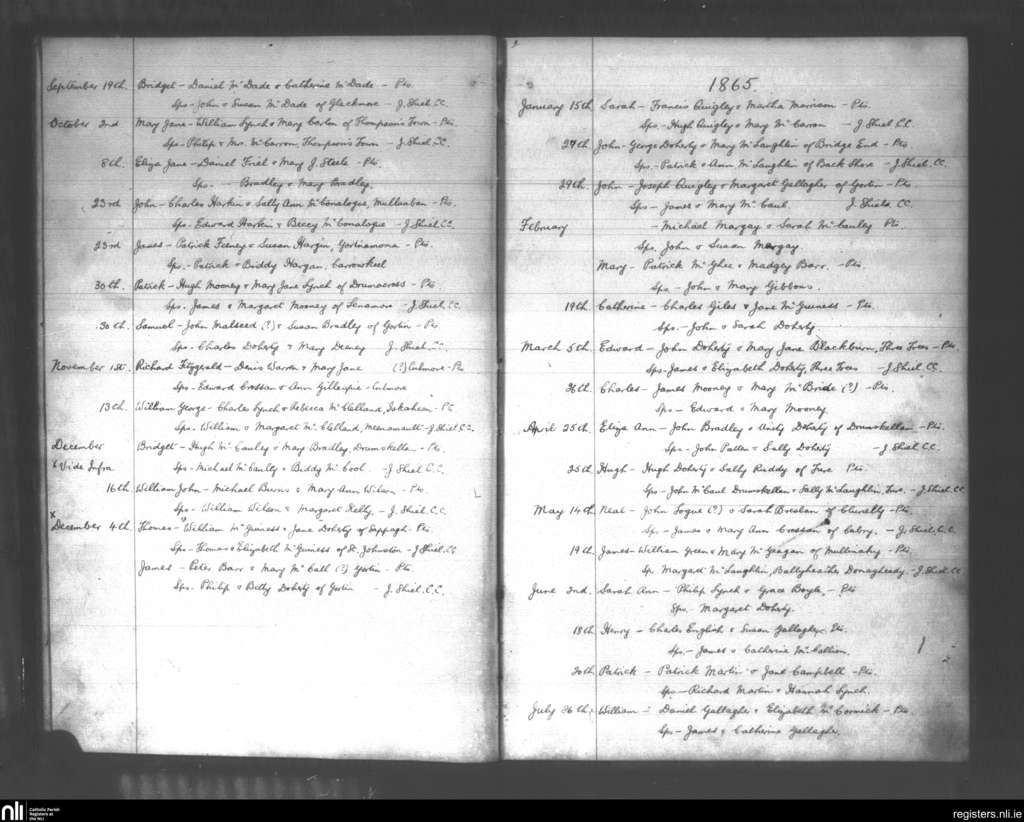 September 19th. Bridget - Daniel McDade & Catherine McDade - Pts.
Sps - John & Susan McDade of Glackmore - J. Shiel C.C.
October 2nd Mary Jane - William Lynch & Mary Carlin of Thompson's Town - Pts.
Sps - Philip & Mrs. McCarron, Thompson's Town - J. Shiel C.C.
8th. Eliza Jane - Daniel Friel & Mary J. Steele - Pts.
Sps. - Bradley & Mary Bradley.
23rd John - Charles Harkin & Sally Ann McConalogue, Mulluaban - Pts.
Sps. Edward Harkin & Beccy McConalogue - J. Shiel C.C.
23rd James - Patrick Feeney & Susan Hargin, Gortinamona - Pts.
Sps. - Patrick & Biddy Hargan, Carrowkeel
30th. Patrick - Hugh Mooney & Mary Jane Lynch of Drumacross - Pts
Sps. James & Margaret Mooney of Tenamore - J. Shiel C.C.
30th. Samuel - John Malseed (?) & Susan Bradley of Gortin - Pts
Sps - Charles Doherty & Mary Deeney J. Shiel C.C.
November 1st. Richard Fitzgerald - Denis Warden & Mary Jane (?) Culmore - Pts
Sps - Edward Crossan & Ann Gillespie - Culmore
13th. William George - Charles Lynch & Rebecca McClelland, Iskaheen - Pts
Sps. William & Margaret McClelland, - J. Shiel C.C.
December Bridget - Hugh McCauley & Mary Bradley, Drumskellan - Pts.
x Vide Infra Sps - Michael McCaulty & Biddy McCool. - J. Shiel C.C.
16th. William John - Michael Burns & Mary Ann Wilson - Pts.
Sps - William Wilson & Margaret Kelly. - J. Shiel C.C.
x
December 4th. Thomas - William McGuiness & Jane Doherty of Soppagh - Pts.
Sps - Thomas & Elizabeth McGuiness of St. Johnston - J. Shiel C.C
James - Peter Barr & Mary McCall (?) Gortin - Pts.
Sps. - Philip & Betty Doherty of Gortin - J. Shiel. C.C.
1865.
January 15th Sarah - Francis Quigley & Martha Morrison - Pts.
Sps - Hugh Quigley & Mary McCarron - J. Shiel C.C.
27th John - George Doherty & Mary McLaughlin of Bridge End - Pts.
Sps - Patrick & Ann McLaughlin of Back Shore - J. Shiel. C.C.
29th. John - Joseph Quigley & Margaret Gallagher of Gortin - Pts
Sps - James & Mary McCaul. J. Shiels C.C.
February - Michael Margay & Sarah McCauley Pts
Sps. John & Susan Margay.
Mary - Patrick McGhee & Madgey Barr. - Pts.
Sps. - John & Mary Gibbons.
19th. Catherine - Charles Giles & Jane McGuiness - Pts.
Sps - John & Sarah Doherty.
March 5th. Edward - John Doherty & Mary Jane Blackburn, Three Trees - Pts.
Sps - James & Elizabeth Doherty, Three Trees - J. Shiel C.C.
26th. Charles - James Mooney & Mary McBride (?) - Pts.
Sps - Edward & Mary Mooney
April 25th. Eliza Ann - John Bradley & Doherty of Drumskellan - Pts.
Sps - John Patten & Sally Doherty - J. Shiel C.C.
25th Hugh - Hugh Doherty & Sally Ruddy of Ture Pts.
Sps - John McCaul Drumskellan & Sally McLaughlin, Ture. - J. Shiel C.C
May 14th Neal - John Logue (?) & Sarah Breslan of Clonelly - Pts
Sps - James & Mary Ann Crossan of Cabry. - J. Shiel. C.C.
19th. James - William Green & Mary McGeagan of - Pts.
Sp. Margaret McLaughlin, Ballyheather, Donagheady. - J. Shiel C.C.
June 2nd. Sarah Ann - Philip Lynch & Grace Boyle, - Pts
Sps. - Margaret Doherty.
18th Henry - Charles English & Susan Gallagher Pts.
Sps - James & Catherine McCallion.
20th Patrick - Patrick Martin & Jane Campbell - Pts.
Sps - Richard Martin & Hannah Lynch.
July 26th. William - Daniel Gallagher & Elizabeth McCormick - Pts.
Sps - James & Catherine Gallagher.
nli Catholic Parish
Registers at
the NLI
registers.nli.ie